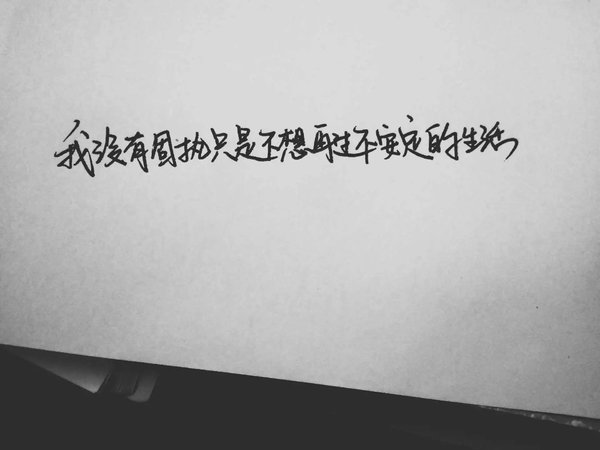 我没有固执只是不想再过不安定的生活